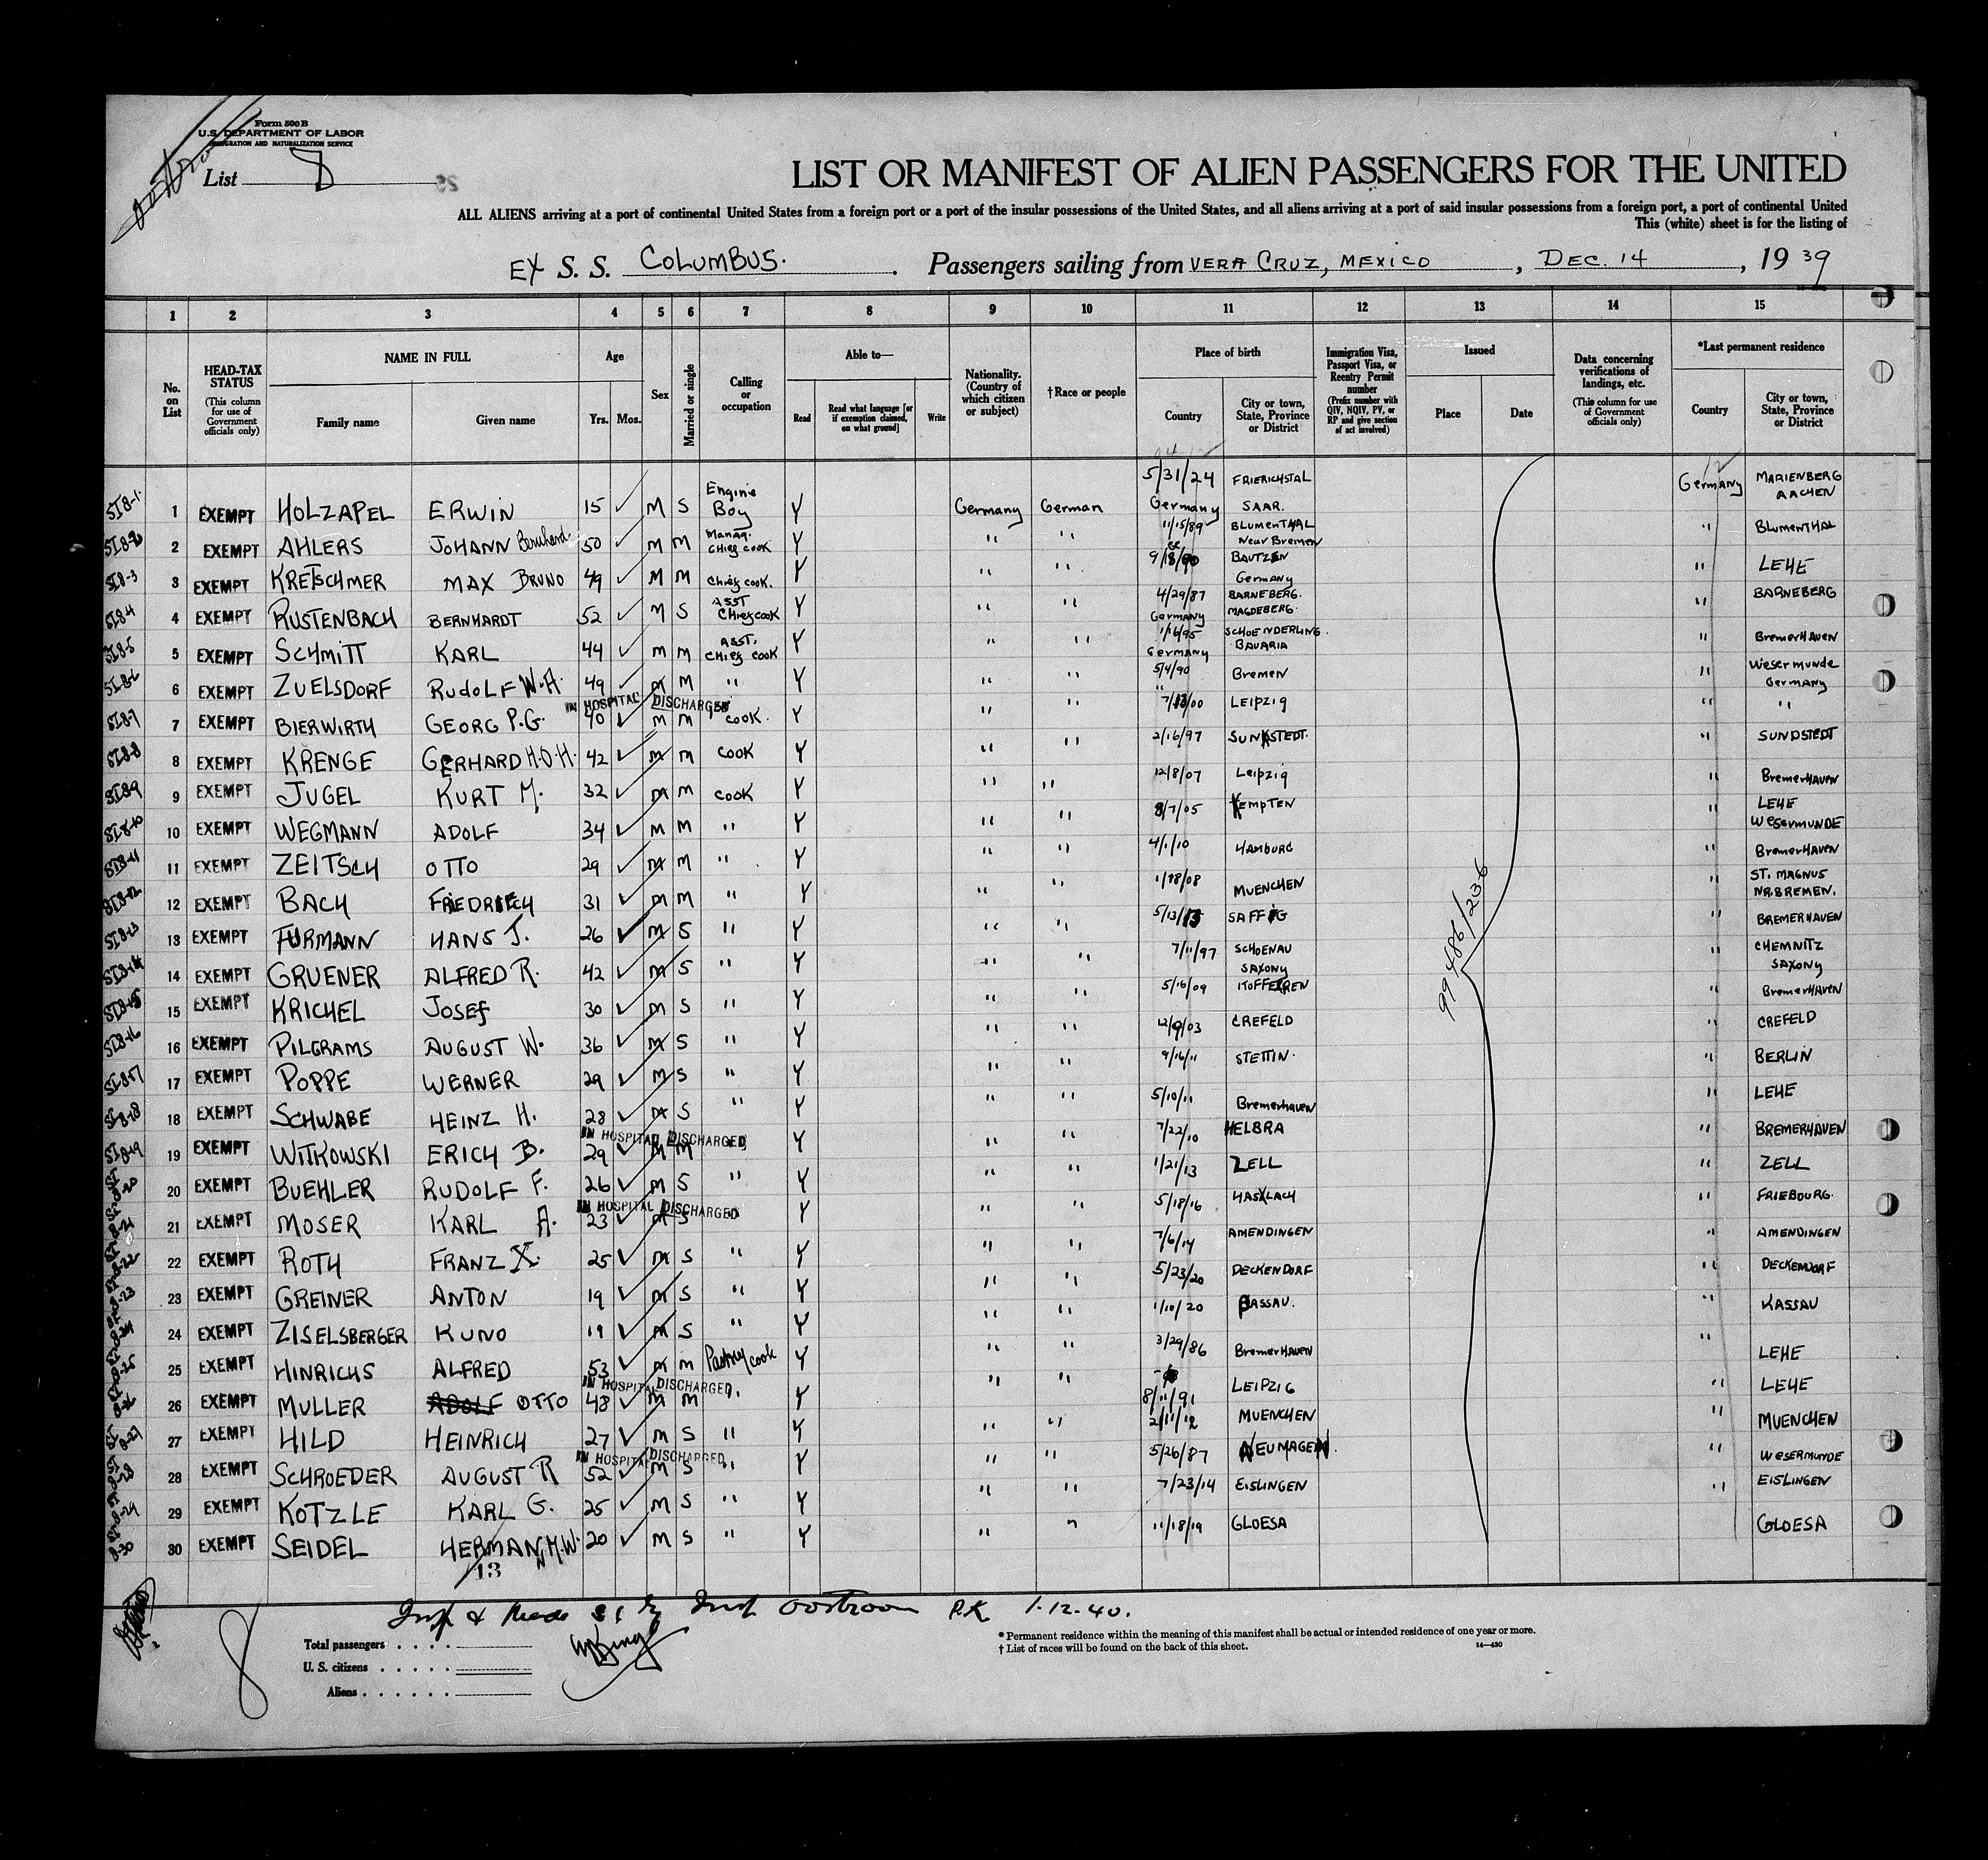 Form 500 B
U.S. DEPARTMENT OF LABOR
IMMIGRATION AND NATURALIZATION SERVICE
List 8
LIST OR MANIFEST OF ALIEN PASSENGERS FOR THE UNITED
ALL ALIENS arriving at a port of continental United States from a foreign port or a port of the insular possessions of the United States, and all aliens arriving at a port of said insular possessions from a foreign port, a port of continental United
This (white) sheet is for the listing of
EX S. S. COLUMBUS. Passengers sailing from VERA CRUZ, MEXICO, DEC. 14, 19 39
1 2 3 4 5 6 7 8 9 10 11 12 13 14 15
No. on List
HEAD-TAX STATUS (This column for use of Government officials only)
NAME IN FULL Family name Given name
Age Yrs. Mos.
Sex
Married or single
Calling or occupation
Able to— Read Read what language [or if exemption claimed, on what ground] Write
Nationality. (Country of which citizen or subject)
† Race or people
Place of birth Country City or town, State, Province or District
Immigration Visa, Passport Visa, or Reentry Permit number (Prefix number with QIV, NQIV, PV, or RP and give section of act involved)
Issued Place Date
Data concerning verifications of landings, etc. (This column for use of Government officials only)
*Last permanent residence Country City or town, State, Province or District
SI8-1 1 EXEMPT HOLZAPEL ERWIN 15 M S Engine Boy Y Germany German 5/31/24 Germany FRIERICHSTAL SAAR. Germany MARIENBERG AACHEN
SI8-2 2 EXEMPT AHLERS JOHANN Bernhard. 50 M M Manag. Chief cook Y " " 11/15/89 BLUMENTHAL Near Bremen " BLUMENTHAL
SI8-3 3 EXEMPT KRETSCHMER MAX BRUNO 49 M M Chief cook. Y " " 9/18/90 BAUTZEN Germany " LEHE
SI8-4 4 EXEMPT RUSTENBACH BERNHARDT 52 M S ASST Chief cook Y " " 4/29/87 Germany BARNEBERG. MAGDEBERG. " BARNEBERG
SI8-5 5 EXEMPT SCHMITT KARL 44 M M ASST. Chief cook Y " " 1/16/95 Germany SCHOENDERLING. BAVARIA " BremerHaven
SI8-6 6 EXEMPT ZUELSDORF RUDOLF W.A. 49 M M " Y " " 5/4/90 Bremen " Wesermunde Germany
IN HOSPITAL DISCHARGED
SI8-7 7 EXEMPT BIERWIRTH GEORG P.G. 40 M M cook. Y " " 7/13/00 LEIPZIG " "
SI8-8 8 EXEMPT KRENGE GERHARD H.O.H. 42 M M COOK Y " " 2/16/97 SUNDSTEDT. " SUNDSTEDT
SI8-9 9 EXEMPT JUGEL KURT M. 32 M M COOK Y " " 12/8/07 Leipzig " BremerHaven
SI8-10 10 EXEMPT WEGMANN ADOLF 34 M M " Y " " 8/7/05 KEMPTEN " LEHE WESERMUNDE
SI8-11 11 EXEMPT ZEITSCH OTTO 29 M M " Y " " 4/1/10 HAMBURG " BremerHaven
SI8-12 12 EXEMPT BACH FRIEDRICH 31 M M " Y " " 1/28/08 MUENCHEN " ST. MAGNUS NR. BREMEN.
SI8-13 13 EXEMPT FURMANN HANS J. 26 M S " Y " " 5/13/13 SAFFIG " BREMERHAVEN
SI8-14 14 EXEMPT GRUENER ALFRED R. 42 M S " Y " " 7/11/97 SCHOENAU SAXONY " CHEMNITZ SAXONY
SI8-15 15 EXEMPT KRICHEL JOSEF 30 M S " Y " " 5/16/09 " BremerHaven
SI8-16 16 EXEMPT PILGRAMS AUGUST W. 36 M S " Y " " 12/9/03 CREFELD " CREFELD
SI8-17 17 EXEMPT POPPE WERNER 29 M S " Y " " 9/16/11 STETTIN. " BERLIN
SI8-18 18 EXEMPT SCHWABE HEINZ H. 28 M S " Y " " 5/10/11 Bremerhaven " LEHE
IN HOSPITAL DISCHARGED
SI8-19 19 EXEMPT WITKOWSKI ERICH B. 29 M M Y " " 7/22/10 HELBRA " BREMERHAVEN
SI 8-20 20 EXEMPT BUEHLER RUDOLF F. 26 M S " Y " " 1/21/13 ZELL " ZELL
IN HOSPITAL DISCHARGED
SI 8-21 21 EXEMPT MOSER KARL A. 23 M S " Y " " 5/18/16 HASLACH " FRIEBOURG.
SI 8-22 22 EXEMPT ROTH FRANZ X. 25 M S " Y " " 7/6/14 AMENDINGEN " AMENDINGEN
SI 8-23 23 EXEMPT GREINER ANTON 19 M S " Y " " 5/23/20 DECKENDORF " DECKENDORF
SI 8-24 24 EXEMPT ZISELSBERGER KUNO 19 M S " Y " " 1/10/20 PASSAU. " KASSAU
SI 8-25 25 EXEMPT HINRICHS ALFRED 53 M M Pastry cook Y " " 3/29/86 BremerHaven " LEHE
IN HOSPITAL DISCHARGED
SI 8-26 26 EXEMPT MULLER ADOLF OTTO 48 M M " Y " " 8/11/91 LEIPZIG " LEHE
SI 8-27 27 EXEMPT HILD HEINRICH 27 M S " Y " " 2/11/12 MUENCHEN " MUENCHEN
IN HOSPITAL DISCHARGED
SI 8-28 28 EXEMPT SCHROEDER AUGUST R 52 M S " Y " " 5/26/87 NEUMAGEN. " WESERMUNDE
SI 8-29 29 EXEMPT KOTZLE KARL G. 25 M S " Y " " 7/23/14 EISLINGEN " EISLINGEN
SI 8-30 30 EXEMPT SEIDEL HERMANN M.W. 20 M S " Y " " 11/18/19 GLOESA GLOESA
99486/236
13
Insp oostroom P.K. 1-12-40.
8
Total passengers
U. S. citizens
Aliens
* Permanent residence within the meaning of this manifest shall be actual or intended residence of one year or more.
† List of races will be found on the back of this sheet.
14—430